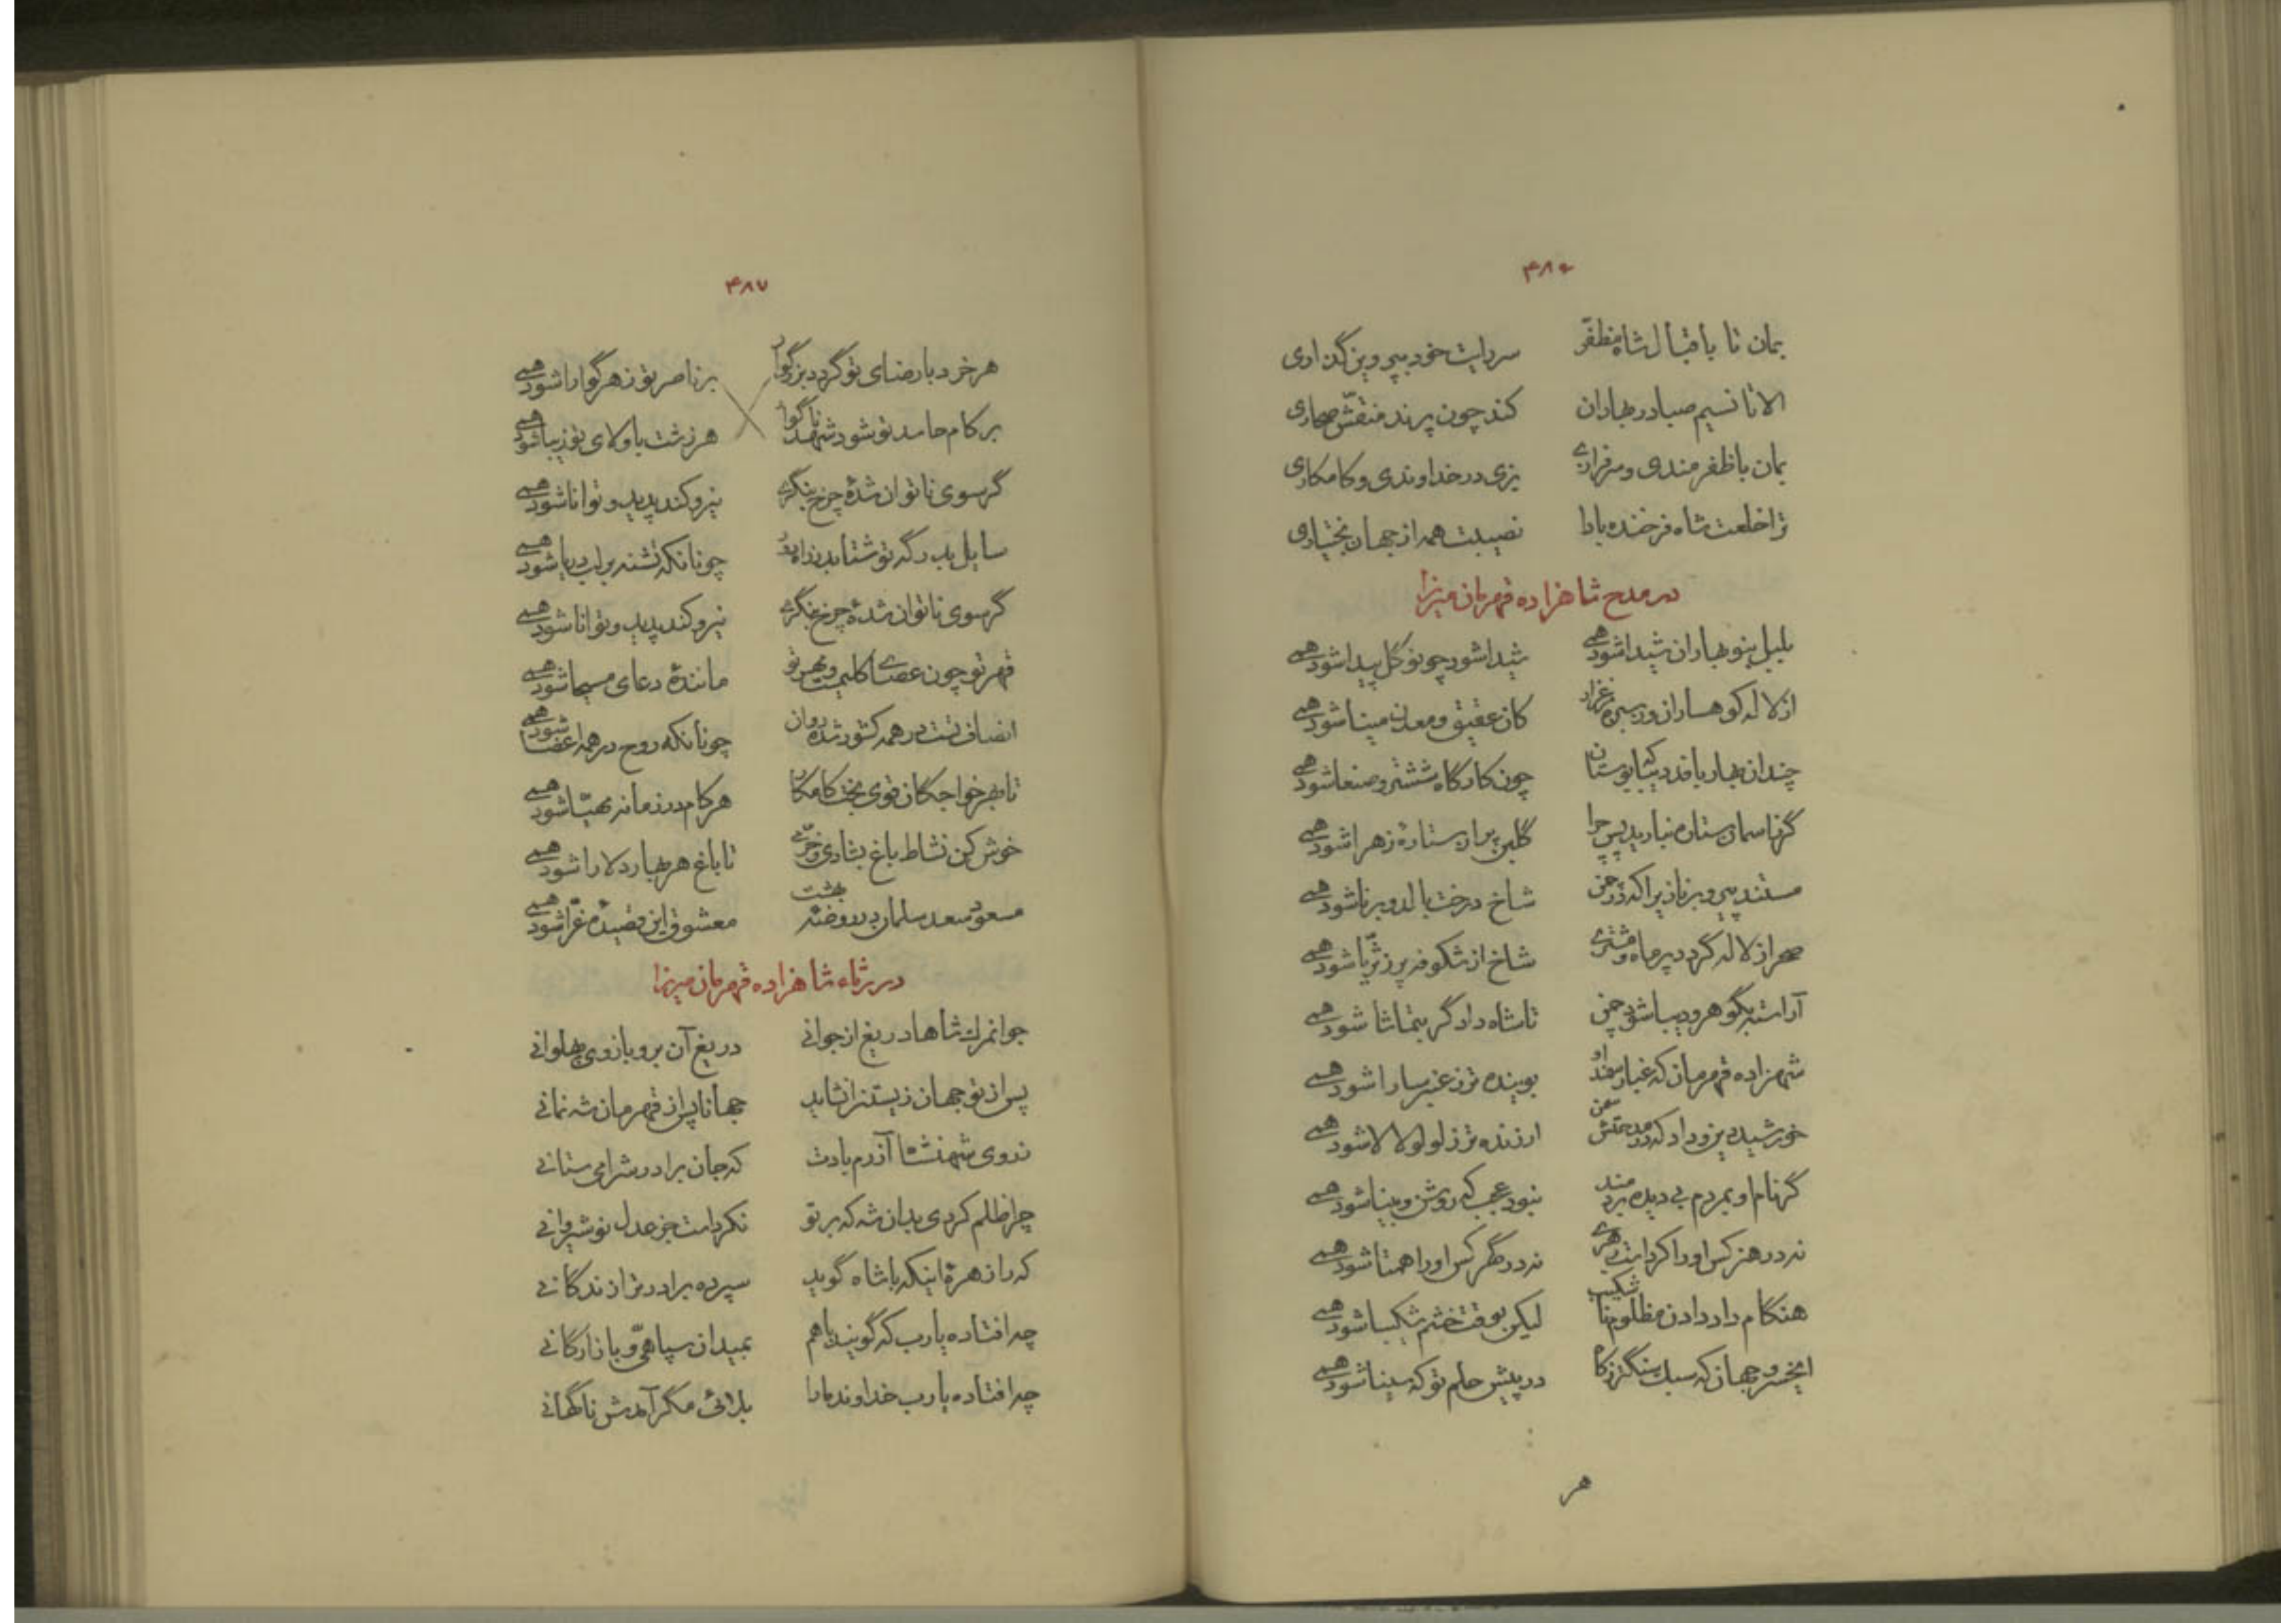 ۴۸۶
بمان تا باقبال شاه مظفّر سر رایت خود بپروین گذاری
الا تا نسیم صبا در بهاران کند چون پرند منقّش صحاری
بمان با ظفرمندی و سرفرازی بزی در خداوندی و کامکاری
ترا خلعت شاه فرخنده بادا نصیبت همه از جهان بختیاری
در مدح شاهزاده قهرمان میرزا
بلبل بنوبهاران شیدا شود همی شیدا شود چو نوگل پیدا شود همی
از لاله کوهساران وز سبزه مرغزار کان عقیق و معدن مینا شود همی
چندان بهار بافد دیبا که بوستان چون کارگاه ششتر و صنعا شود همی
گر ز آسمان ستاره نبارید پس چرا گلبن پر از ستارهٔ زهرا شود همی
مستند پیر و برنا زیرا که در چمن شاخ درخت بالد و برنا شود همی
صحرا ز لاله گردد پر ماه و مشتری شاخ از شکوفه پر ز ثریّا شود همی
آراسته بگوهر و دیبا شود چمن تا شاه دادگر بتماشا شود همی
شهزاده قهرمان که غبار سمند او بوینده‌تر ز عنبر سارا شود همی
خورشید دین و داد که در مدحتش سخن ارزنده‌تر ز لولو لالا شود همی
گر نام او بمردم بی دیده بردمند نبود عجب که روشن و بینا شود همی
نه در هنر کس او را کرد است همسری نه در گهر کس او را همتا شود همی
هنگام داد دادن مظلوم ناشکیب لیکن بوقت خشم شکیبا شود همی
ای خسرو جهان که سبک سنگ‌تر ز کاه در پیش حلم تو که سینا شود همی
هر
۴۸۷
هر خرد با رضای تو گردد بزرگوار بر ناصر تو زهر گوارا شود همی
بر کام حاسد تو شود شهد ناگوار هر زشت با ولای تو زیبا شود همی
گر سوی ناتوان شدهٔ چرخ بنگری نیرو کند پدید و توانا شود همی
سایل بدرگه تو شتابد ز راه دور چونانکه تشنه بر لب دریا شود همی
گر سوی ناتوان شدهٔ چرخ بنگری نیرو کند پدید و توانا شود همی
قهر تو چون عصای کلیمست و مهر تو مانندهٔ دعای مسیحا شود همی
انصاف تست در همه کشور شده روان چونانکه روح در همه اعضا شود همی
تا بهر خواجگان قوی بخت کامکار هر کام در زمانه مهیّا شود همی
خوش کن نشاط باغ بشادی و خرّمی تا باغ هر بهار دلارا شود همی
مسعود سعد سلمان در روضهٔ بهشت معشوق این قصیدهٔ غرّا شود همی
در رثاء شاهزاده قهرمان میرزا
جوانمرگ شاها دریغ از جوانی دریغ آن بر و بازوی پهلوانی
پس از تو جهان زیستن را نشاید جهانا پس از قهرمان شه نمانی
ز روی شهنشاه آزرم بادت که جان برادرش را می ستانی
چرا ظلم کردی بدان شه که بر تو نکرد است جز عدل نوشیروانی
که را زهرهٔ اینکه با شاه گوید سپرده برادر ترا زندگانی
چه افتاده یارب که گویند با هم بمیدان سپاهیّ و بازارگانی
چه افتاده یارب خداوند ما را بلائی مگر آمدش ناگهانی